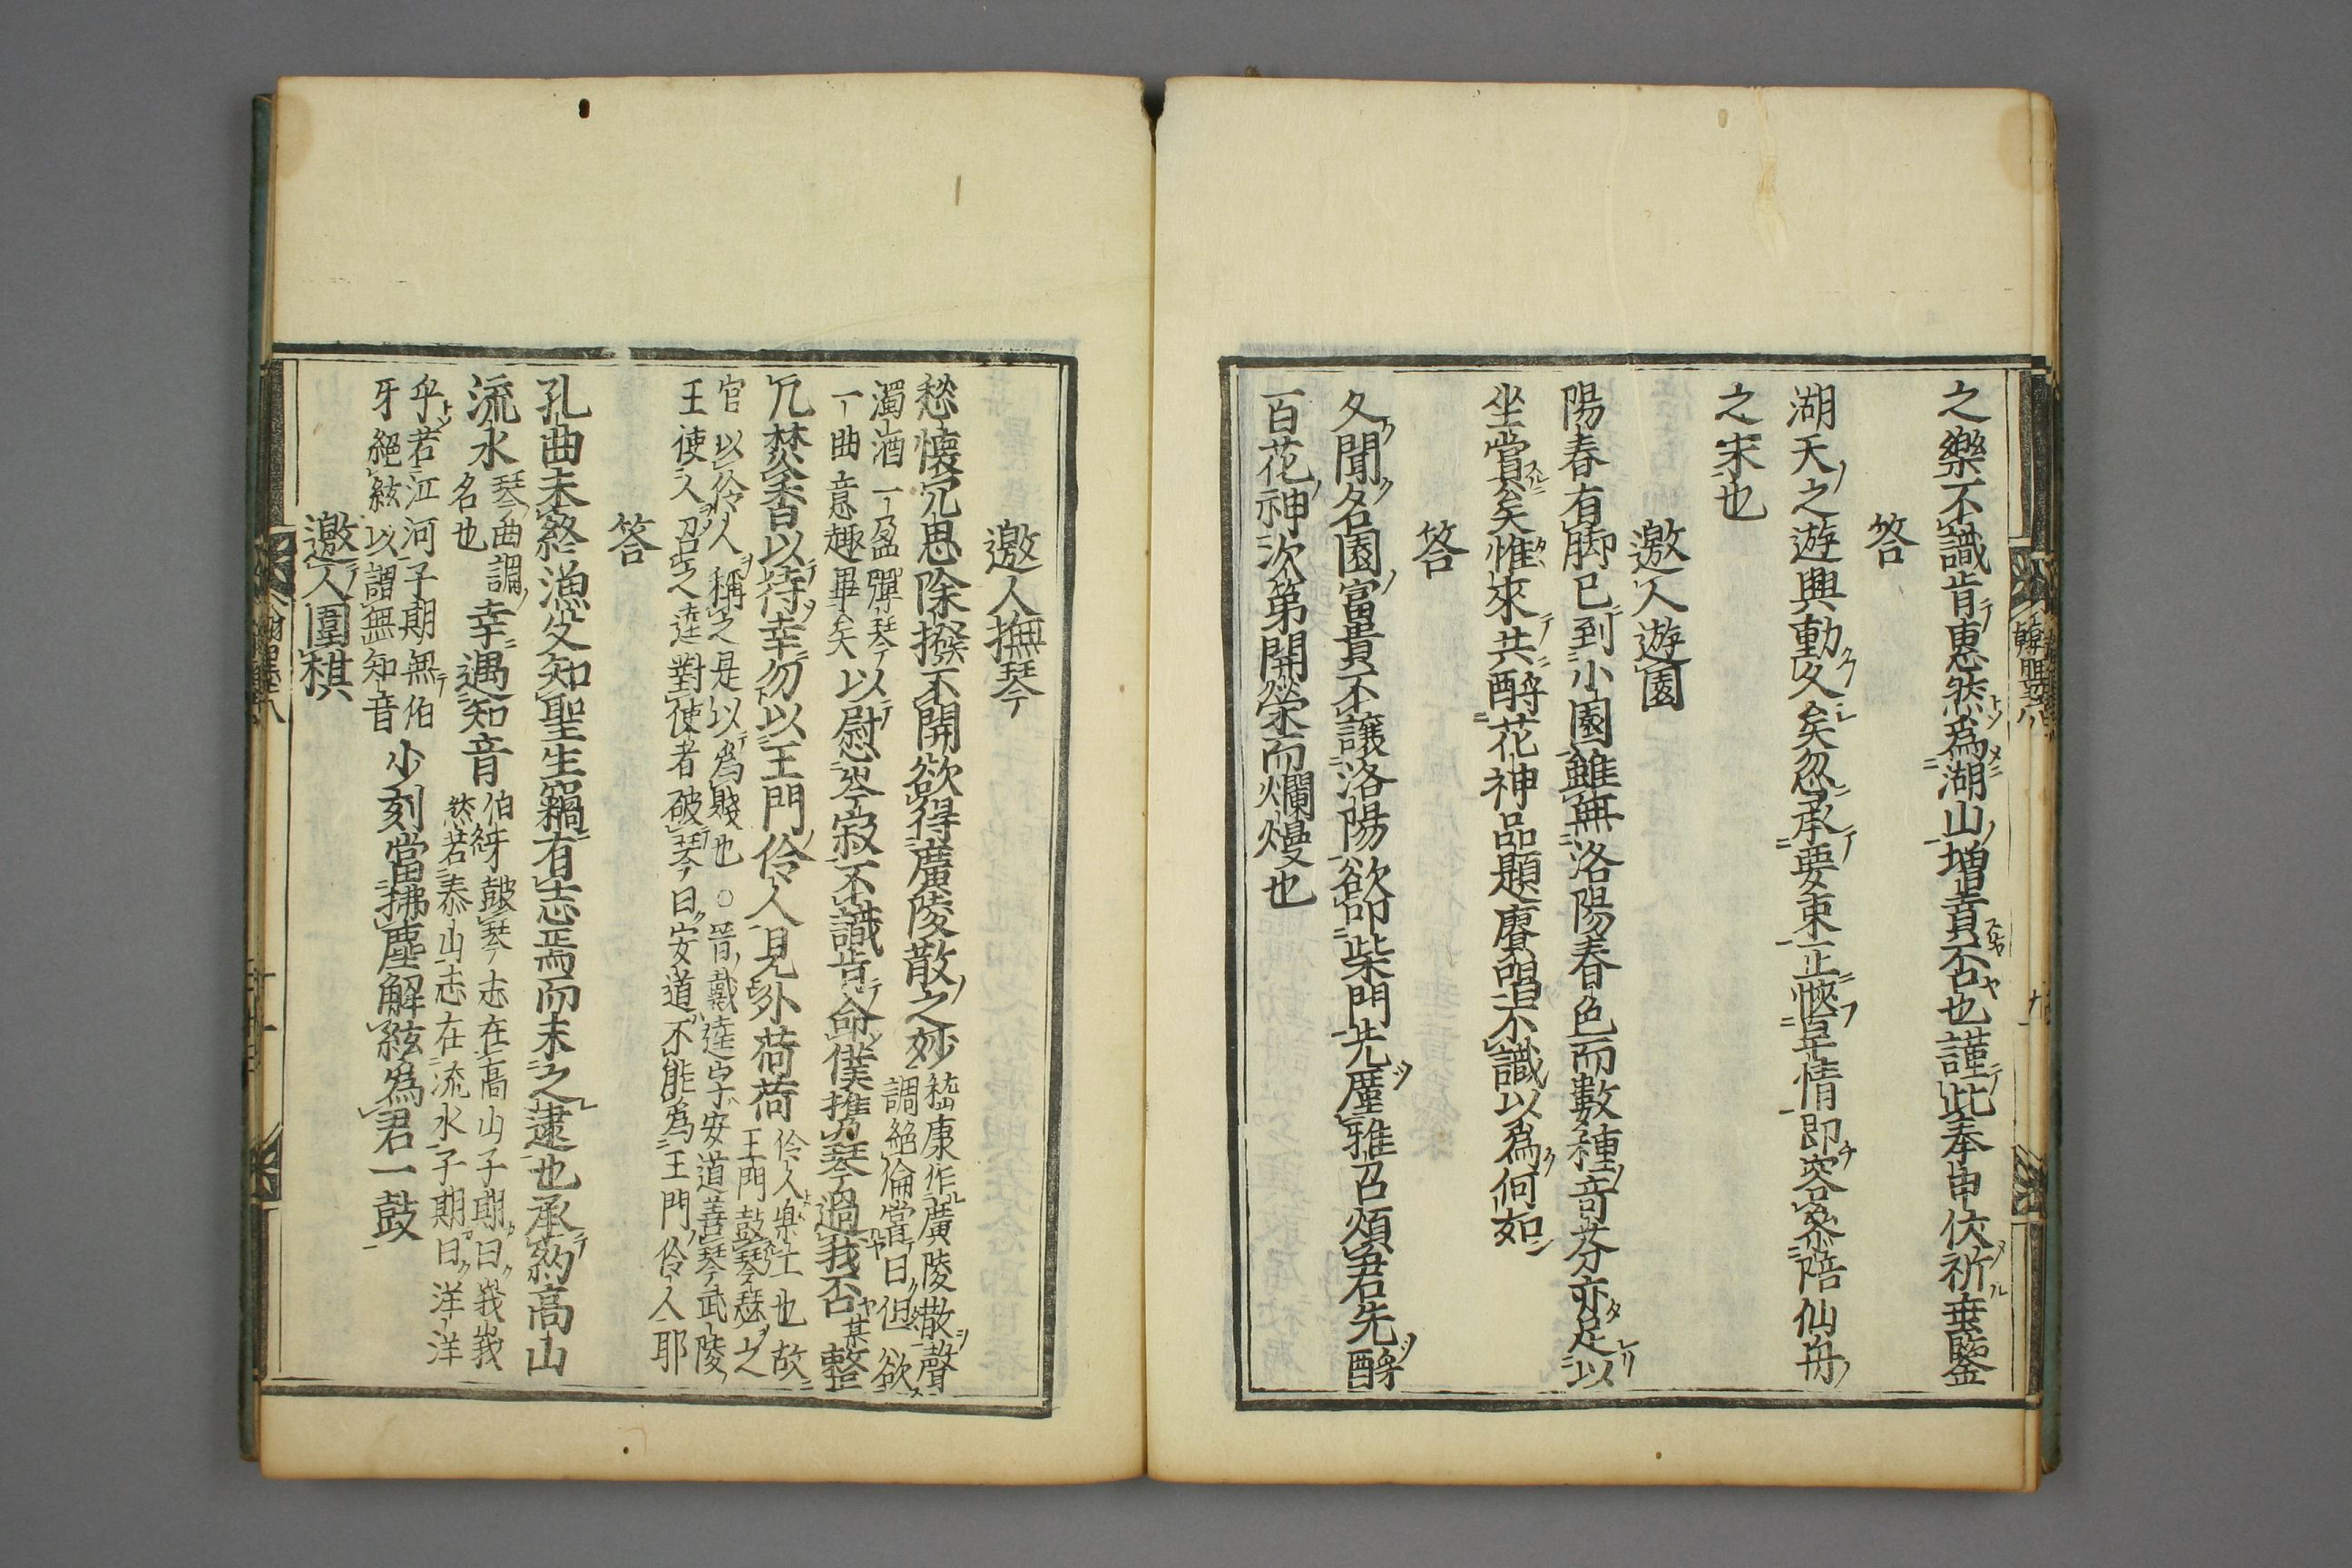 之樂不識肯惠然爲湖山増賁否也謹此奉申佽祈垂鑒
答
湖天之遊興動久矣忽承要束正愜旱情即容來陪仙舟
之末也
邀人遊園
陽春有脚已到小園雖無洛陽春色而數種竒芬亦足以
坐賞矣惟來共酹花神品題賡唱不識以爲何如
答
久聞名園富貴不讓洛陽欲卬柴門先塵雅召煩吾君先酹
百花神次第開榮而爛熳也
邀人撫琴
愁懷冗思除撥不開欲得廣陵散之妙
嵇康作廣陵散聲
調絶倫嘗曰但欲
濁酒一盃彈琴
一曲意趣畢矣
以慰岑寂不識肯命僕携琴過我否某整
几焚香以待幸勿以王門伶人見外荷荷
伶人樂工也故
王門鼓琴瑟之
官以伶人稱之是以爲賤也○晉戴逵字安道善琴武陵
王使人召之逵對使者破琴曰安道不能爲王門伶人耶
答
孔曲未終漁父知聖生竊有志焉而未之逮也承約高山
流水
琴曲調
名也
幸遇知音
伯牙鼓琴志在高山子期曰峩峩
然若泰山志在流水子期曰洋洋
乎若江河子期無伯
牙絶絃以謂無知音
少刻當拂塵解絃爲君一鼓
邀人圍棋